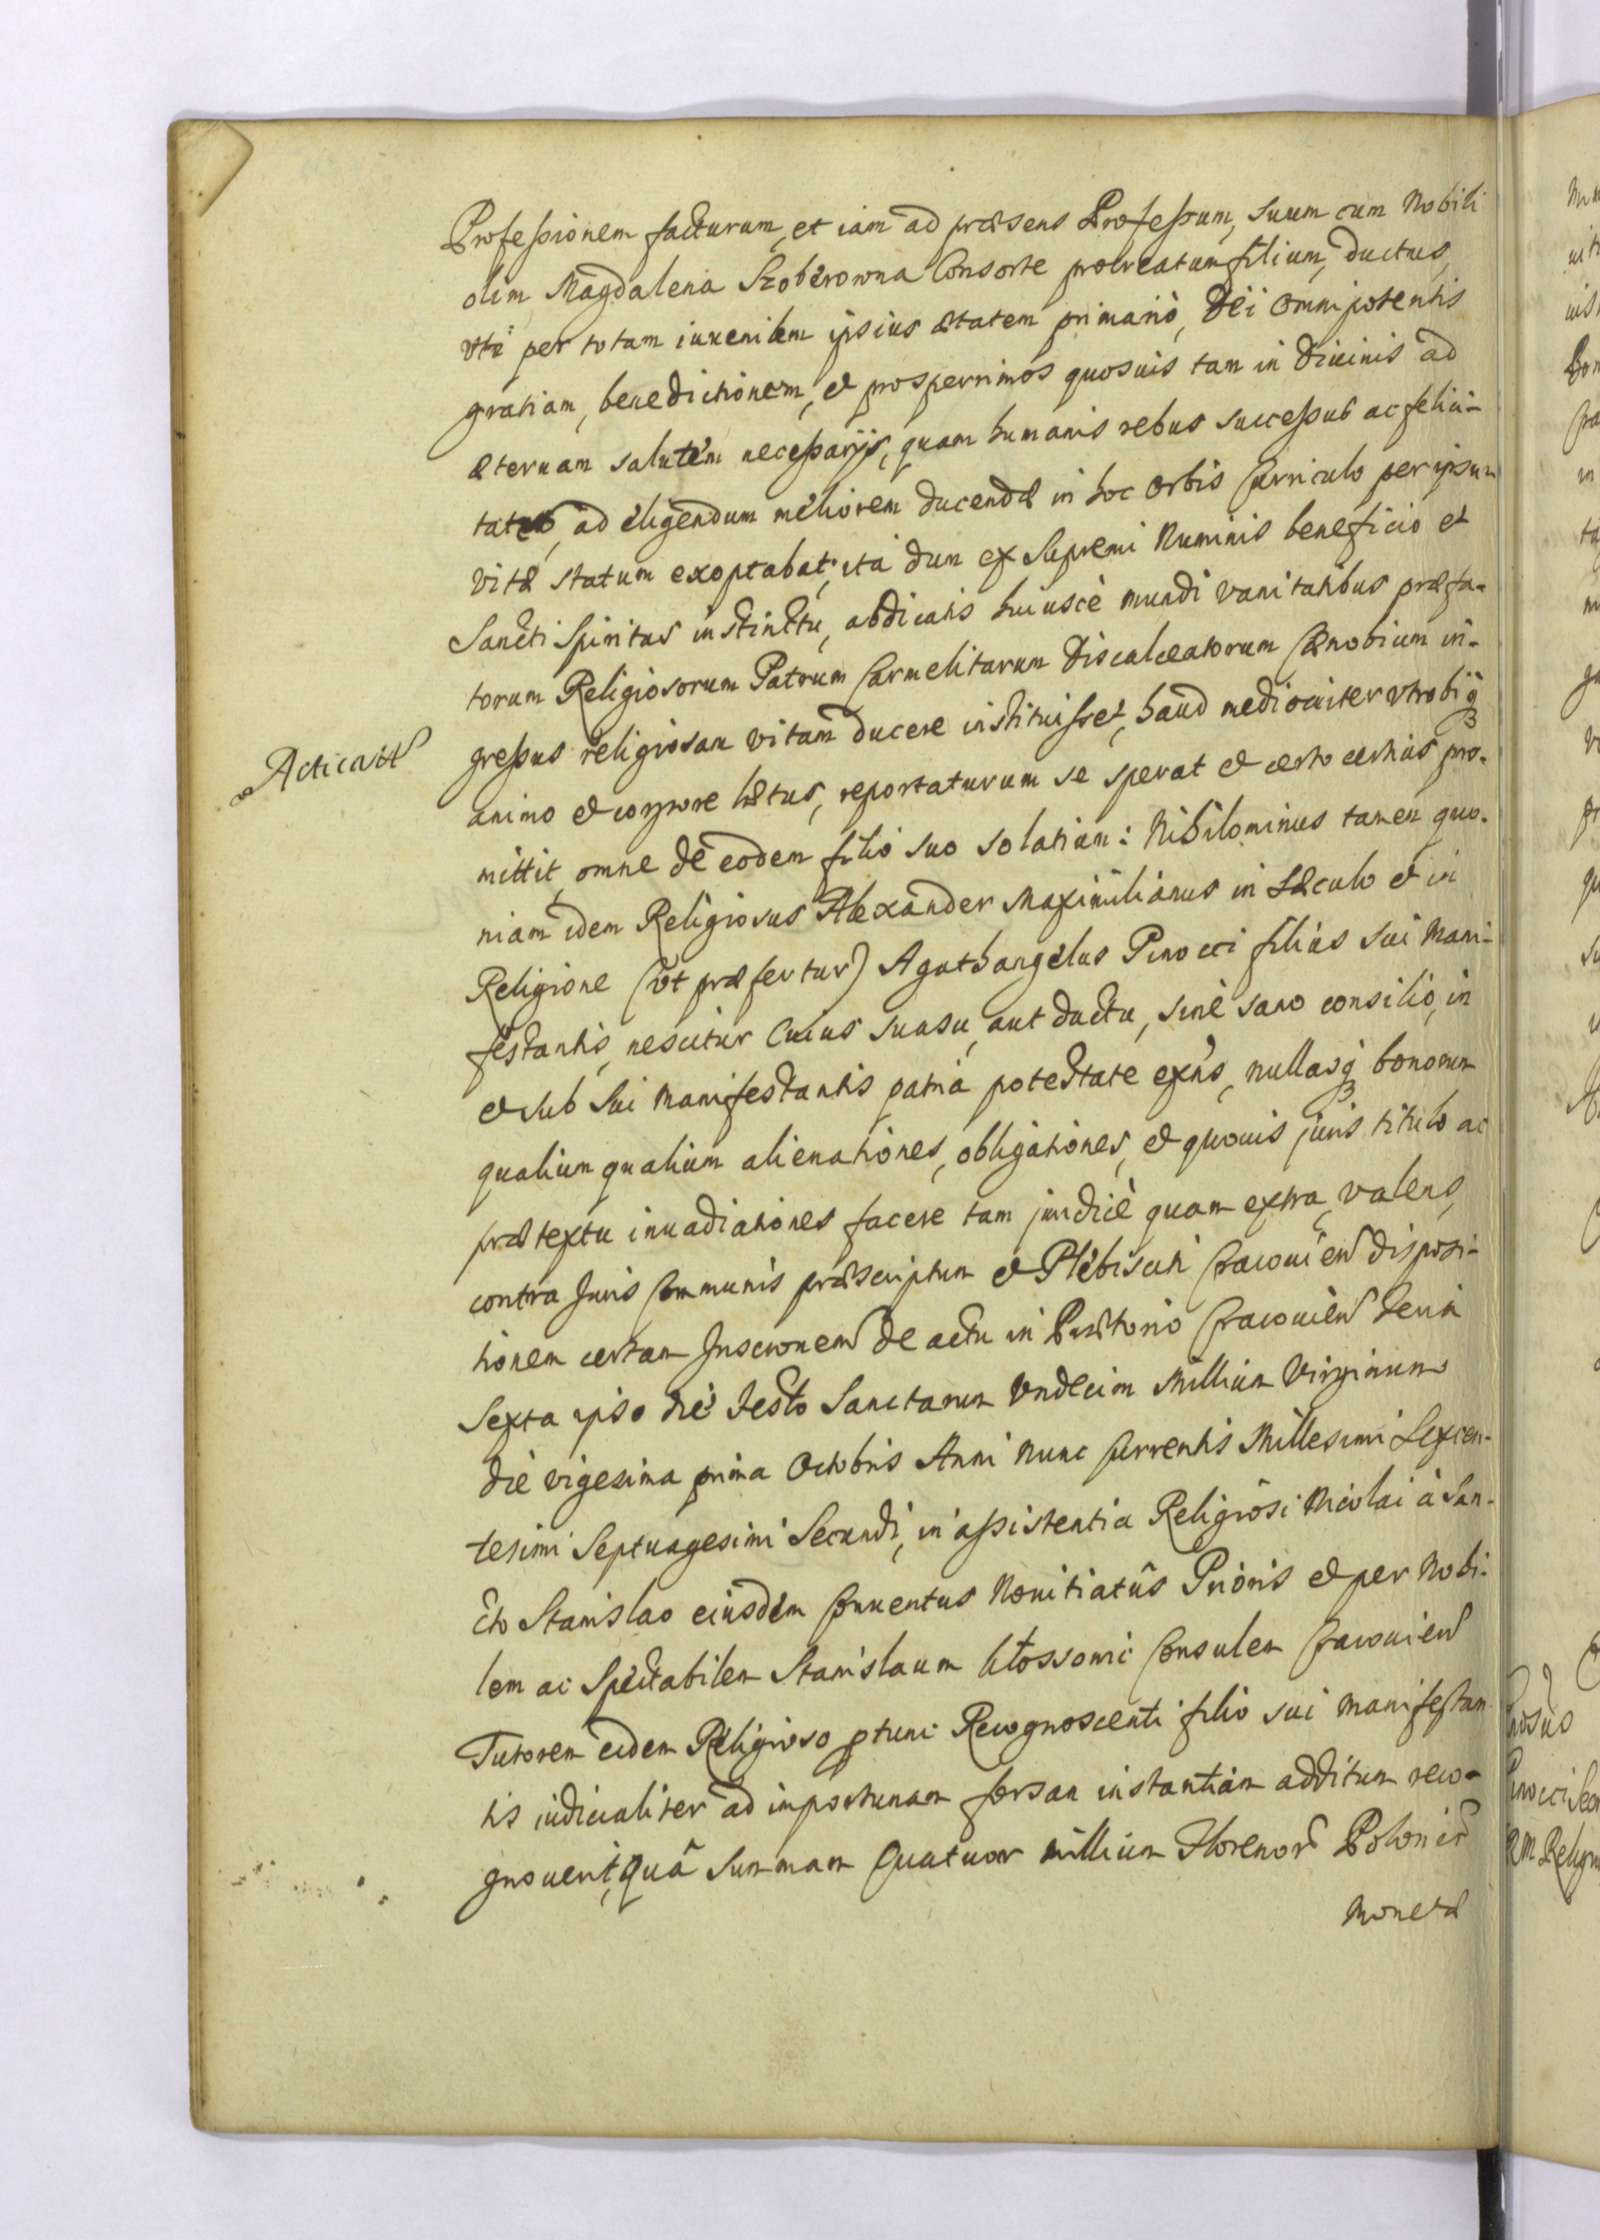 Professionem facturum, et iam ad præsens Professum, suum cum Nobili
olim Magdalena Szoberowna Consorte procreatum filium, ductus,
vti per totam iuuenilem ipsius ætatem primario, Dei Omnipotentis
gratiam, benedictionem, et prosperrimos quosuis tam in Diuinis ad
æternam salutem necessarijs, quam humanis rebus successus ac felici-
tates, ad eligendum meliorem ducendæ in hoc Orbis Curriculo per ipsum
vitæ statum exoptabat; ita dum ex Supremi Numinis beneficio et
Sancti Spiritus instinctu, abdicatis huiusce mundi vanitatibus præfa-
torum Religiosorum Patrum Carmelitarum Discalceatorum Cænobium in-
gressus religiosam vitam ducere instituisset, haud mediocriter vtrobiq3
Acticatt
animo et corpore lætus, reportaturum se sperat et certo certius pro-
mittit, omne de eodem filio suo solatium: Nihilominus tamen quo-
niam idem Religiosus Alexander Maximilianus in Sæculo et in
Religione (vt præfertur) Agathangelus Pinocci filius sui Mani-
festantis, nescitur Cuius suasu, aut ductu, sine sano consilio, in
et sub sui Manifestantis patria potestate exñs, nullasq3 bonorum
qualiumqualium alienationes, obligationes, et quouis juris titulo ac
prætextu inuadiationes facere tam juridice quam extra, valens,
contra Juris Communis præscriptum et Plebisciti Cracouien disposi-
tionem certam Inscrionem de actu in Prætorio Cracouien feria
Sexta ipso die festo Sanctarum Vndecim Millium Virginum
die vigesima prima Octobris Anni nunc Currentis Millesimi Sexcen-
tesimi Septuagesimi Secundi, in assistentia Religiosi Nicolai à San-
cto Stanislao eiusdem Conuentus Nouitiatûs Prioris et per Nobi-
lem ac Spectabilem Stanislaum Consulem Cracouien
Tutorem eidem Religioso ptunc Recognoscenti filio sui manifestan
tis iudicialiter ad importunam forsan instantiam additum reco-
gnouerit, Quâ summam Quatuor millium Florenor Polonic
Monetæ